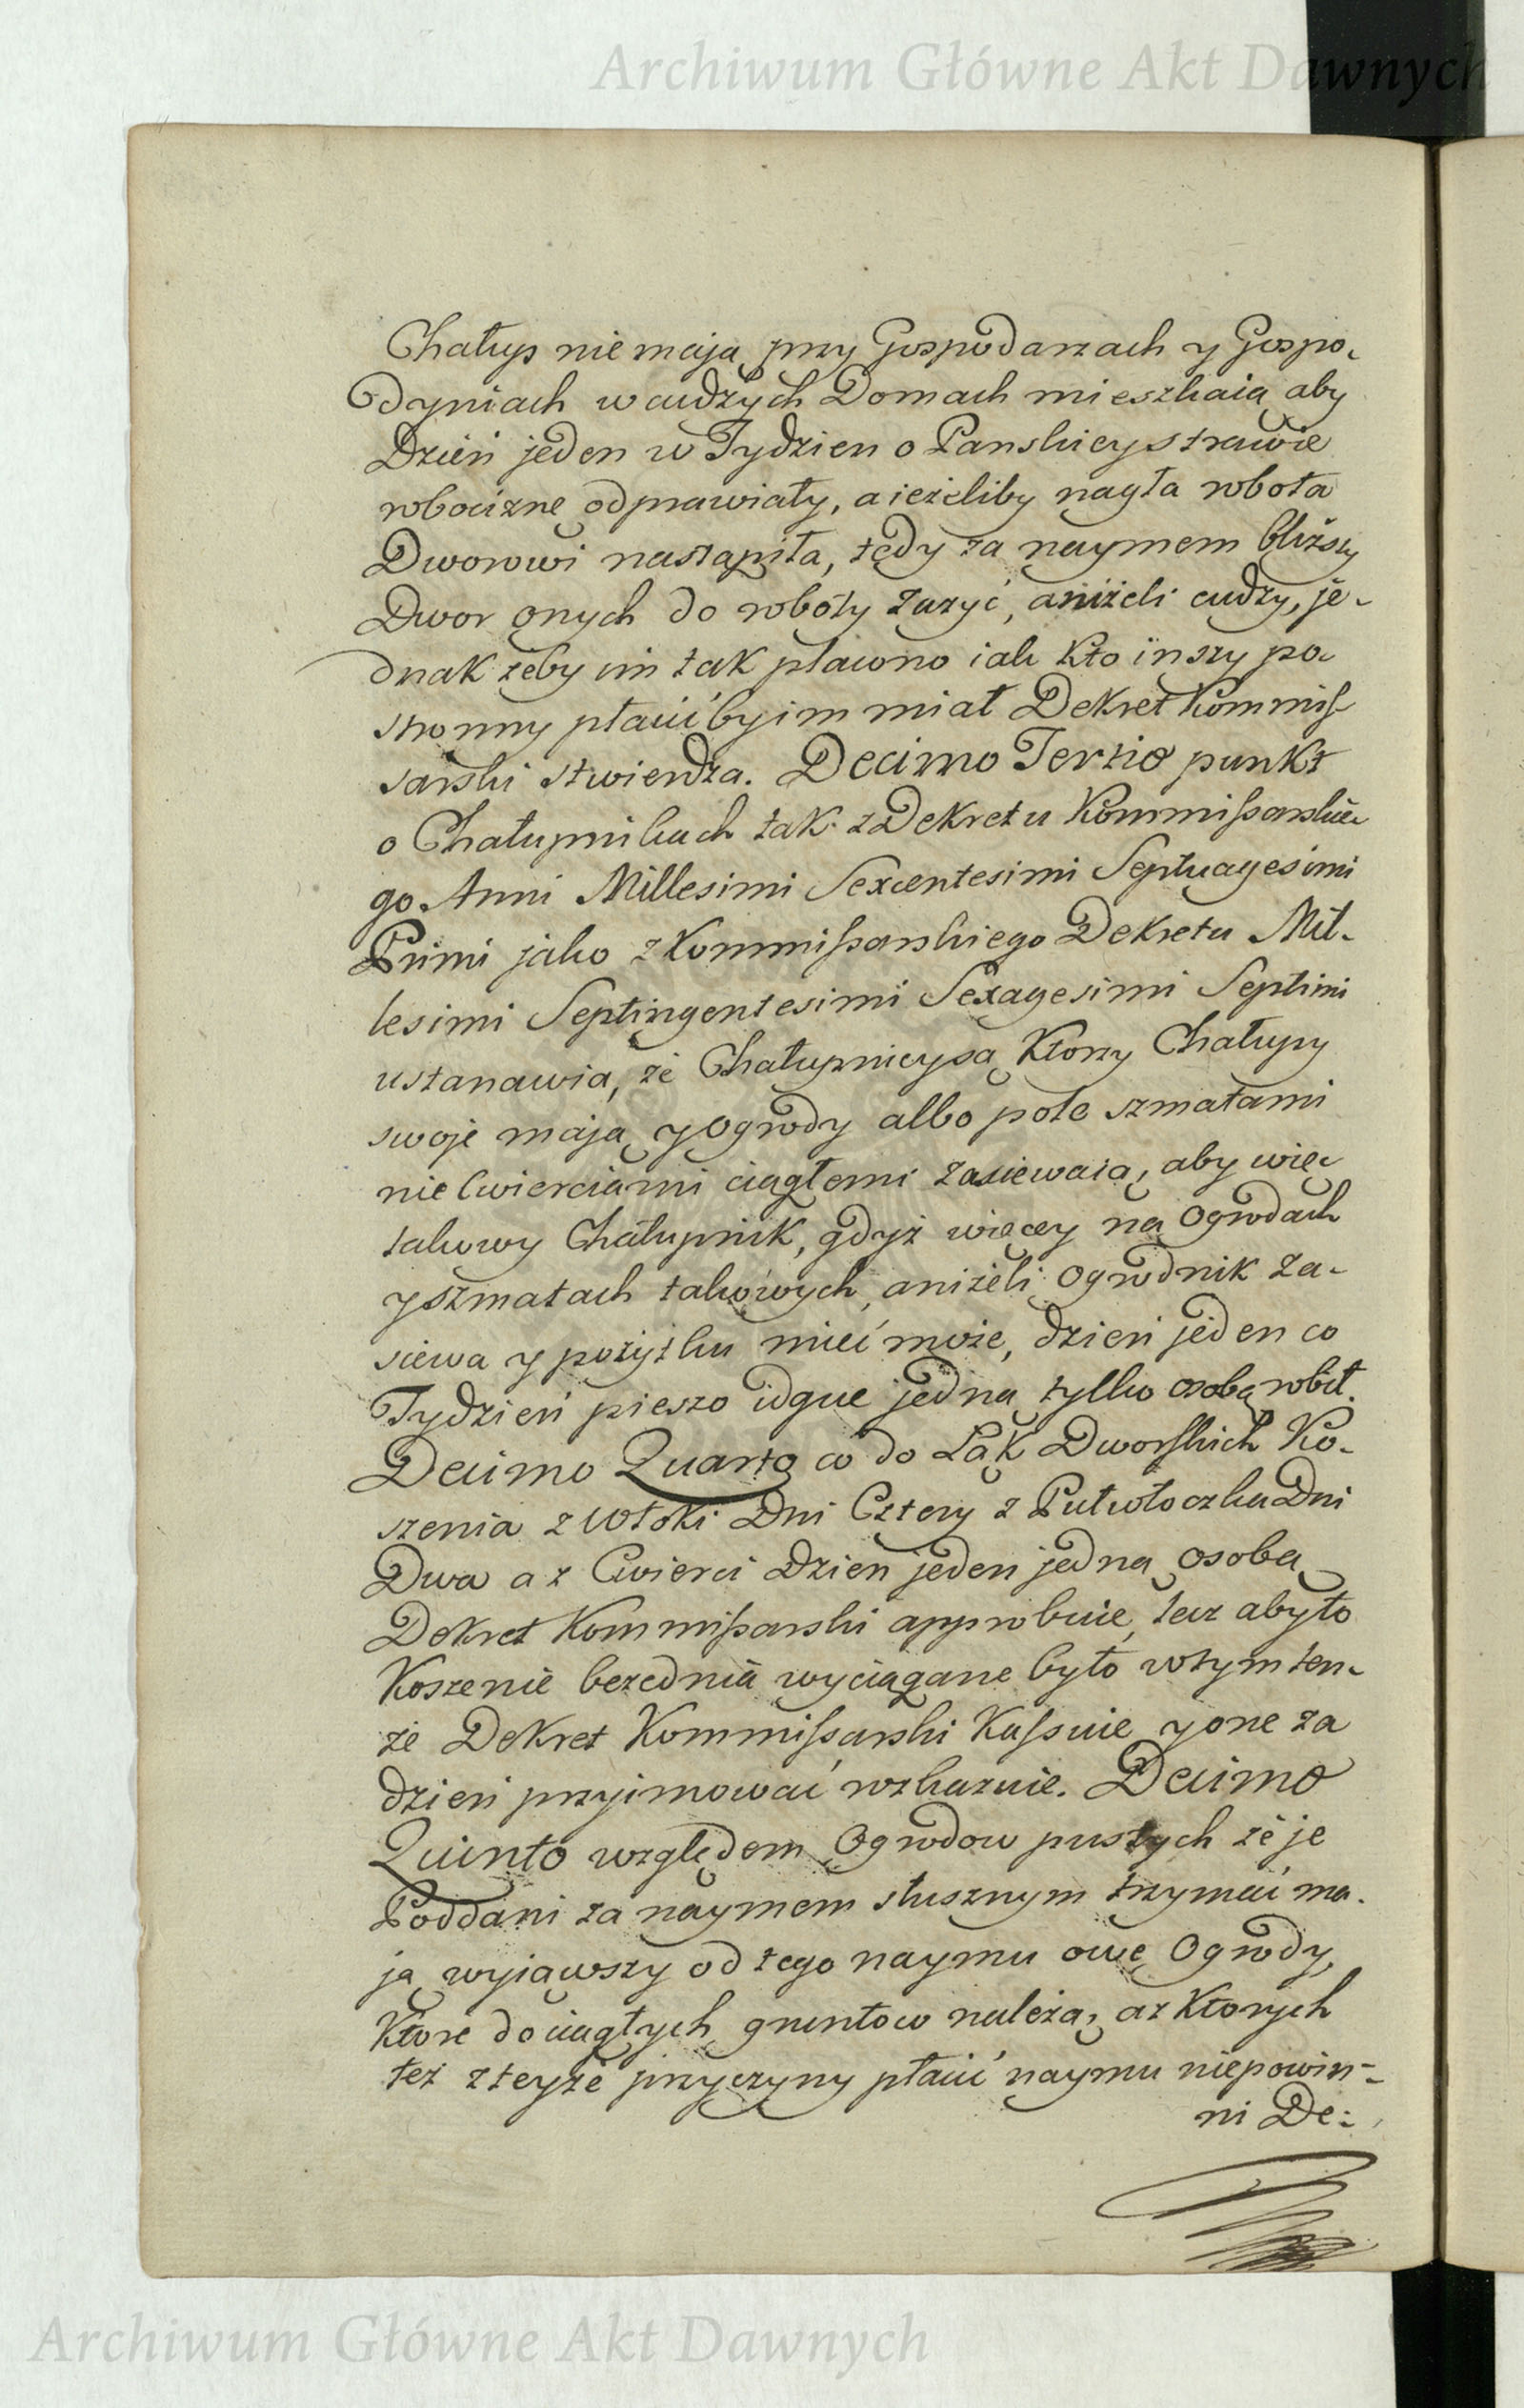 Archiwum Główne Akt Dawnych
Chałup nie mają przy Gospodarzach y Gospo-
dyniach w cudzych Domach mieszkaią aby
Dzień jeden w Tydzien o Panskiey strawie
robociznę odprawiały, a ieżeliby nagła robota
Dworowi nastąpiła, tedy za naymem bliższy
Dwor onych do roboty zazyć, aniżeli cudzy, je-
dnak żeby im tak pławno iak kto inszy po-
stronny płacićby im miał Dekret Kommis-
sarski stwierdza. Decimo Tertio punkt
o Chałupnikach tak z Dekretu Kommissarskie-
go Anni Millesimi Sexcentesimi Septuagesimi
Primi jako z Kommissarskiego Dekretu Mil-
lesimi Septingentesimi Sexagesimi Septimi
ustanawia, że Chałupnicy są ktorzy Chałupy
swoje mają y Ogrody albo pole szmatami
nie Cwierciami ciągłemi zasiewaią, aby więc
takowy Chałupnik, gdyż więcey na Ogrodach
y szmatach takowych, aniżeli Ogrodnik za-
siewa y pożytku mieć może, dzień jeden co
Tydzień pieszo idąc jedną tylko osobą robił.
Decimo Quarto co do Łąk Dworskich Ko-
szenia z Włoki Dni Cztery z Pułwłoczka Dni
Dwa a z Cwierci Dzien jeden jedną osobą
Dekret Kommissarski approbuie, lecz aby to
Koszenie bezednia wyciągane było w tym ten-
że Dekret Kommissarski Kassuie y one za
dzień przyimować rozkazuie. Decimo
Quinto względem Ogrodow pustych że je
Poddani za naymem słusznym trzymać ma-
ją wyiąwszy od tego naymu owe Ogrody,
Ktore do ciągłych gruntow należą, a z Ktorych
też z teyże przyczyny płacić naymu niepowin-
ni De-
Archiwum Główne Akt Dawnych